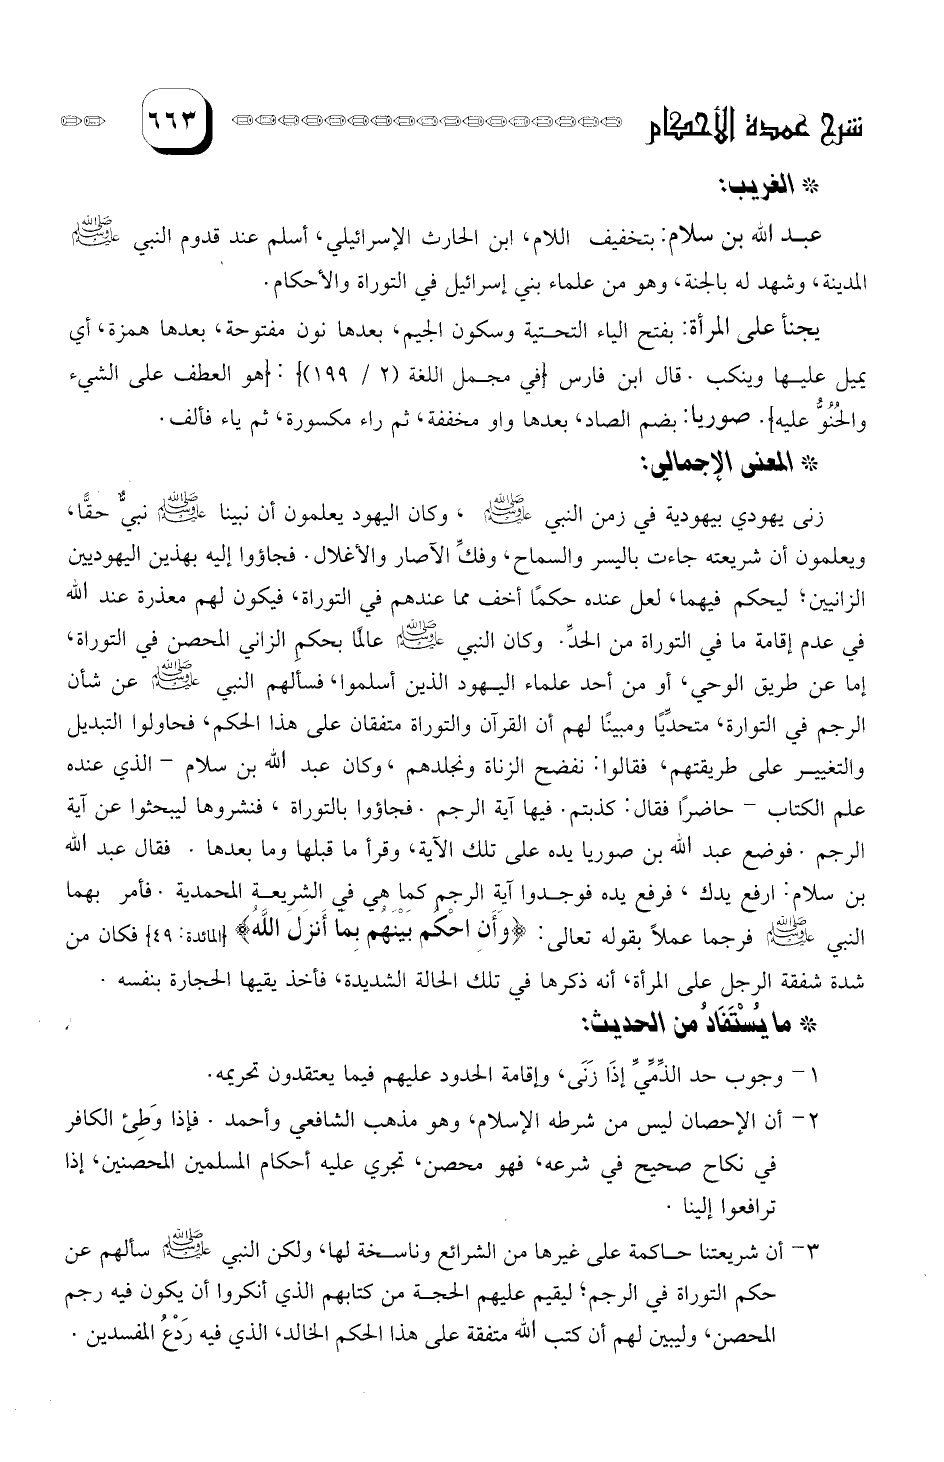 شرح عمدة الأحكام ٦٦٣
* الغريب:
عبد الله بن سلام: بتخفيف اللام، ابن الحارث الإسرائيلي، أسلم عند قدوم النبي ﷺ
المدينة، وشهد له بالجنة، وهو من علماء بني إسرائيل في التوراة والأحكام.
يجنأ على المرأة: بفتح الياء التحتية وسكون الجيم، بعدها نون مفتوحة، بعدها همزة، أي
يميل عليها وينكب. قال ابن فارس {في مجمل اللغة (٢ / ١٩٩)} : {هو العطف على الشيء
والحُنُوُّ عليه}. صوريا: بضم الصاد، بعدها واو مخففة، ثم راء مكسورة، ثم ياء فألف.
* المعنى الإجمالي:
زنى يهودي بيهودية في زمن النبي ﷺ ، وكان اليهود يعلمون أن نبينا ﷺ نبيٌّ حقًّا،
ويعلمون أن شريعته جاءت باليسر والسماح، وفكِّ الآصار والأغلال. فجاؤوا إليه بهذين اليهوديين
الزانيين؛ ليحكم فيهما، لعل عنده حكمًا أخف مما عندهم في التوراة، فيكون لهم معذرة عند الله
في عدم إقامة ما في التوراة من الحدِّ. وكان النبي ﷺ عالمًا بحكم الزاني المحصن في التوراة،
إما عن طريق الوحي، أو من أحد علماء اليهود الذين أسلموا، فسألهم النبي ﷺ عن شأن
الرجم في التوارة، متحدِّيًا ومبينًا لهم أن القرآن والتوراة متفقان على هذا الحكم، فحاولوا التبديل
والتغيير على طريقتهم، فقالوا: نفضح الزناة ونجلدهم ، وكان عبد الله بن سلام - الذي عنده
علم الكتاب - حاضرًا فقال: كذبتم. فيها آية الرجم . فجاؤوا بالتوراة ، فنشروها ليبحثوا عن آية
الرجم . فوضع عبد الله بن صوريا يده على تلك الآية، وقرأ ما قبلها وما بعدها . فقال عبد الله
بن سلام: ارفع يدك ، فرفع يده فوجدوا آية الرجم كما هي في الشريعة المحمدية . فأمر بهما
النبي ﷺ فرجما عملاً بقوله تعالى: ﴿وَأَن احْكُم بَيْنَهُم بِمَا أَنزَلَ اللَّهُ﴾ {المائدة: ٤٩} فكان من
شدة شفقة الرجل على المرأة، أنه ذكرها في تلك الحالة الشديدة، فأخذ يقيها الحجارة بنفسه .
* ما يُسْتَفَادُ من الحديث:
١- وجوب حد الذِّمِّيِّ إِذَا زَنَى، وإقامة الحدود عليهم فيما يعتقدون تحريمه.
٢- أن الإحصان ليس من شرطه الإسلام، وهو مذهب الشافعي وأحمد . فإذا وَطِئ الكافر
في نكاح صحيح في شرعه، فهو محصن، تجري عليه أحكام المسلمين المحصنين، إذا
ترافعوا إلينا .
٣- أن شريعتنا حاكمة على غيرها من الشرائع وناسخة لها، ولكن النبي ﷺ سألهم عن
حكم التوراة في الرجم؛ ليقيم عليهم الحجة من كتابهم الذي أنكروا أن يكون فيه رجم
المحصن، وليبين لهم أن كتب الله متفقة على هذا الحكم الخالد، الذي فيه رَدْعُ المفسدين .